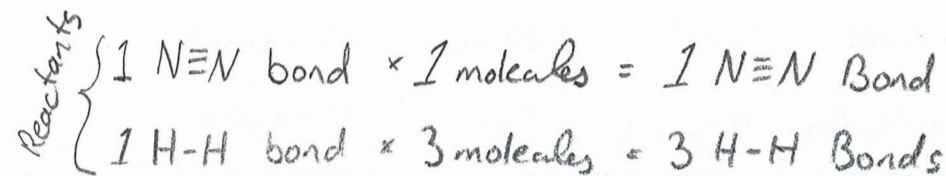 Reactants
1 N≡N bond × 1 molecules = 1 N≡N Bond
1 H-H bond × 3 molecules = 3 H-H Bonds